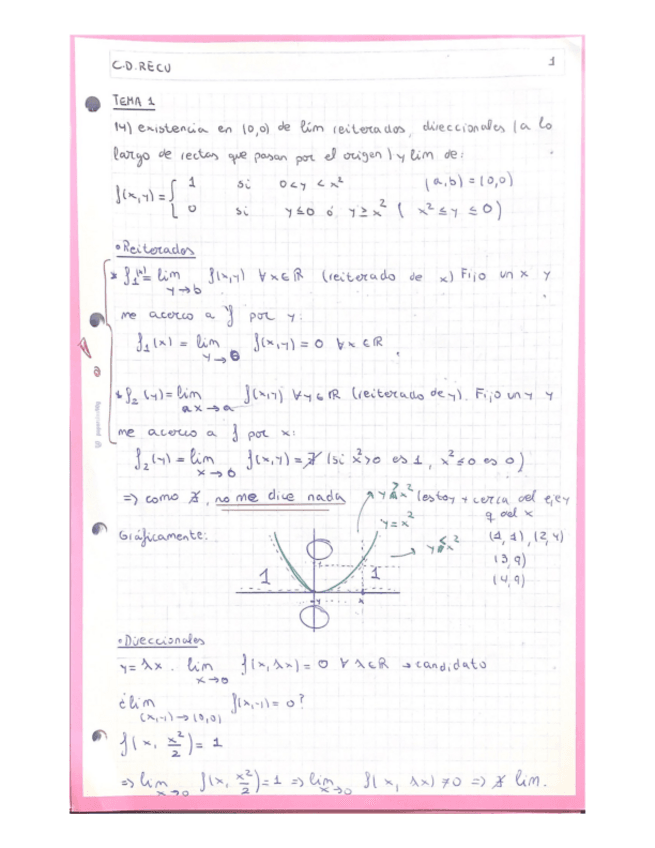 C.D.RECU 1
TEMA 1
14) existencia en (0,0) de lím reiterados, direccionales (a lo
largo de rectas que pasan por el origen) y lim de:
f(x,y) = { 1 si 0<y<x² (a,b) = (0,0)
0 si y≤0 ó y≥x² ( x²≤y≤0)
• Reiterados
* f₁(x) = lim y→b f(x,y) ∀x∈ℝ (reiterado de x) Fijo un x y
me acerco a f por y:
f₁(x) = lim y→0 f(x,y) = 0 ∀x∈ℝ.
* f₂(y) = lim x→a f(x,y) ∀y∈ℝ (reiterado de y). Fijo un y y
me acerco a f por x:
f₂(y) = lim x→0 f(x,y) = ∄ (si x²>0 es 1, x²≤0 es 0)
=> como ∄, no me dice nada
y>x² (estoy + cerca del eje y
q del x
y=x²
Gráficamente:
y<x²
(1,1), (2,4)
(3,9)
(4,9)
1 1
x
• Direccionales
y=λx. lim x→0 f(x,λx) = 0 ∀λ∈ℝ → candidato
¿lim (x,y)→(0,0) f(x,y) = 0?
f(x, x²/2) = 1
=> lim x→0 f(x, x²/2) = 1 => lim x→0 f(x, λx) ≠ 0 => ∄ lim.